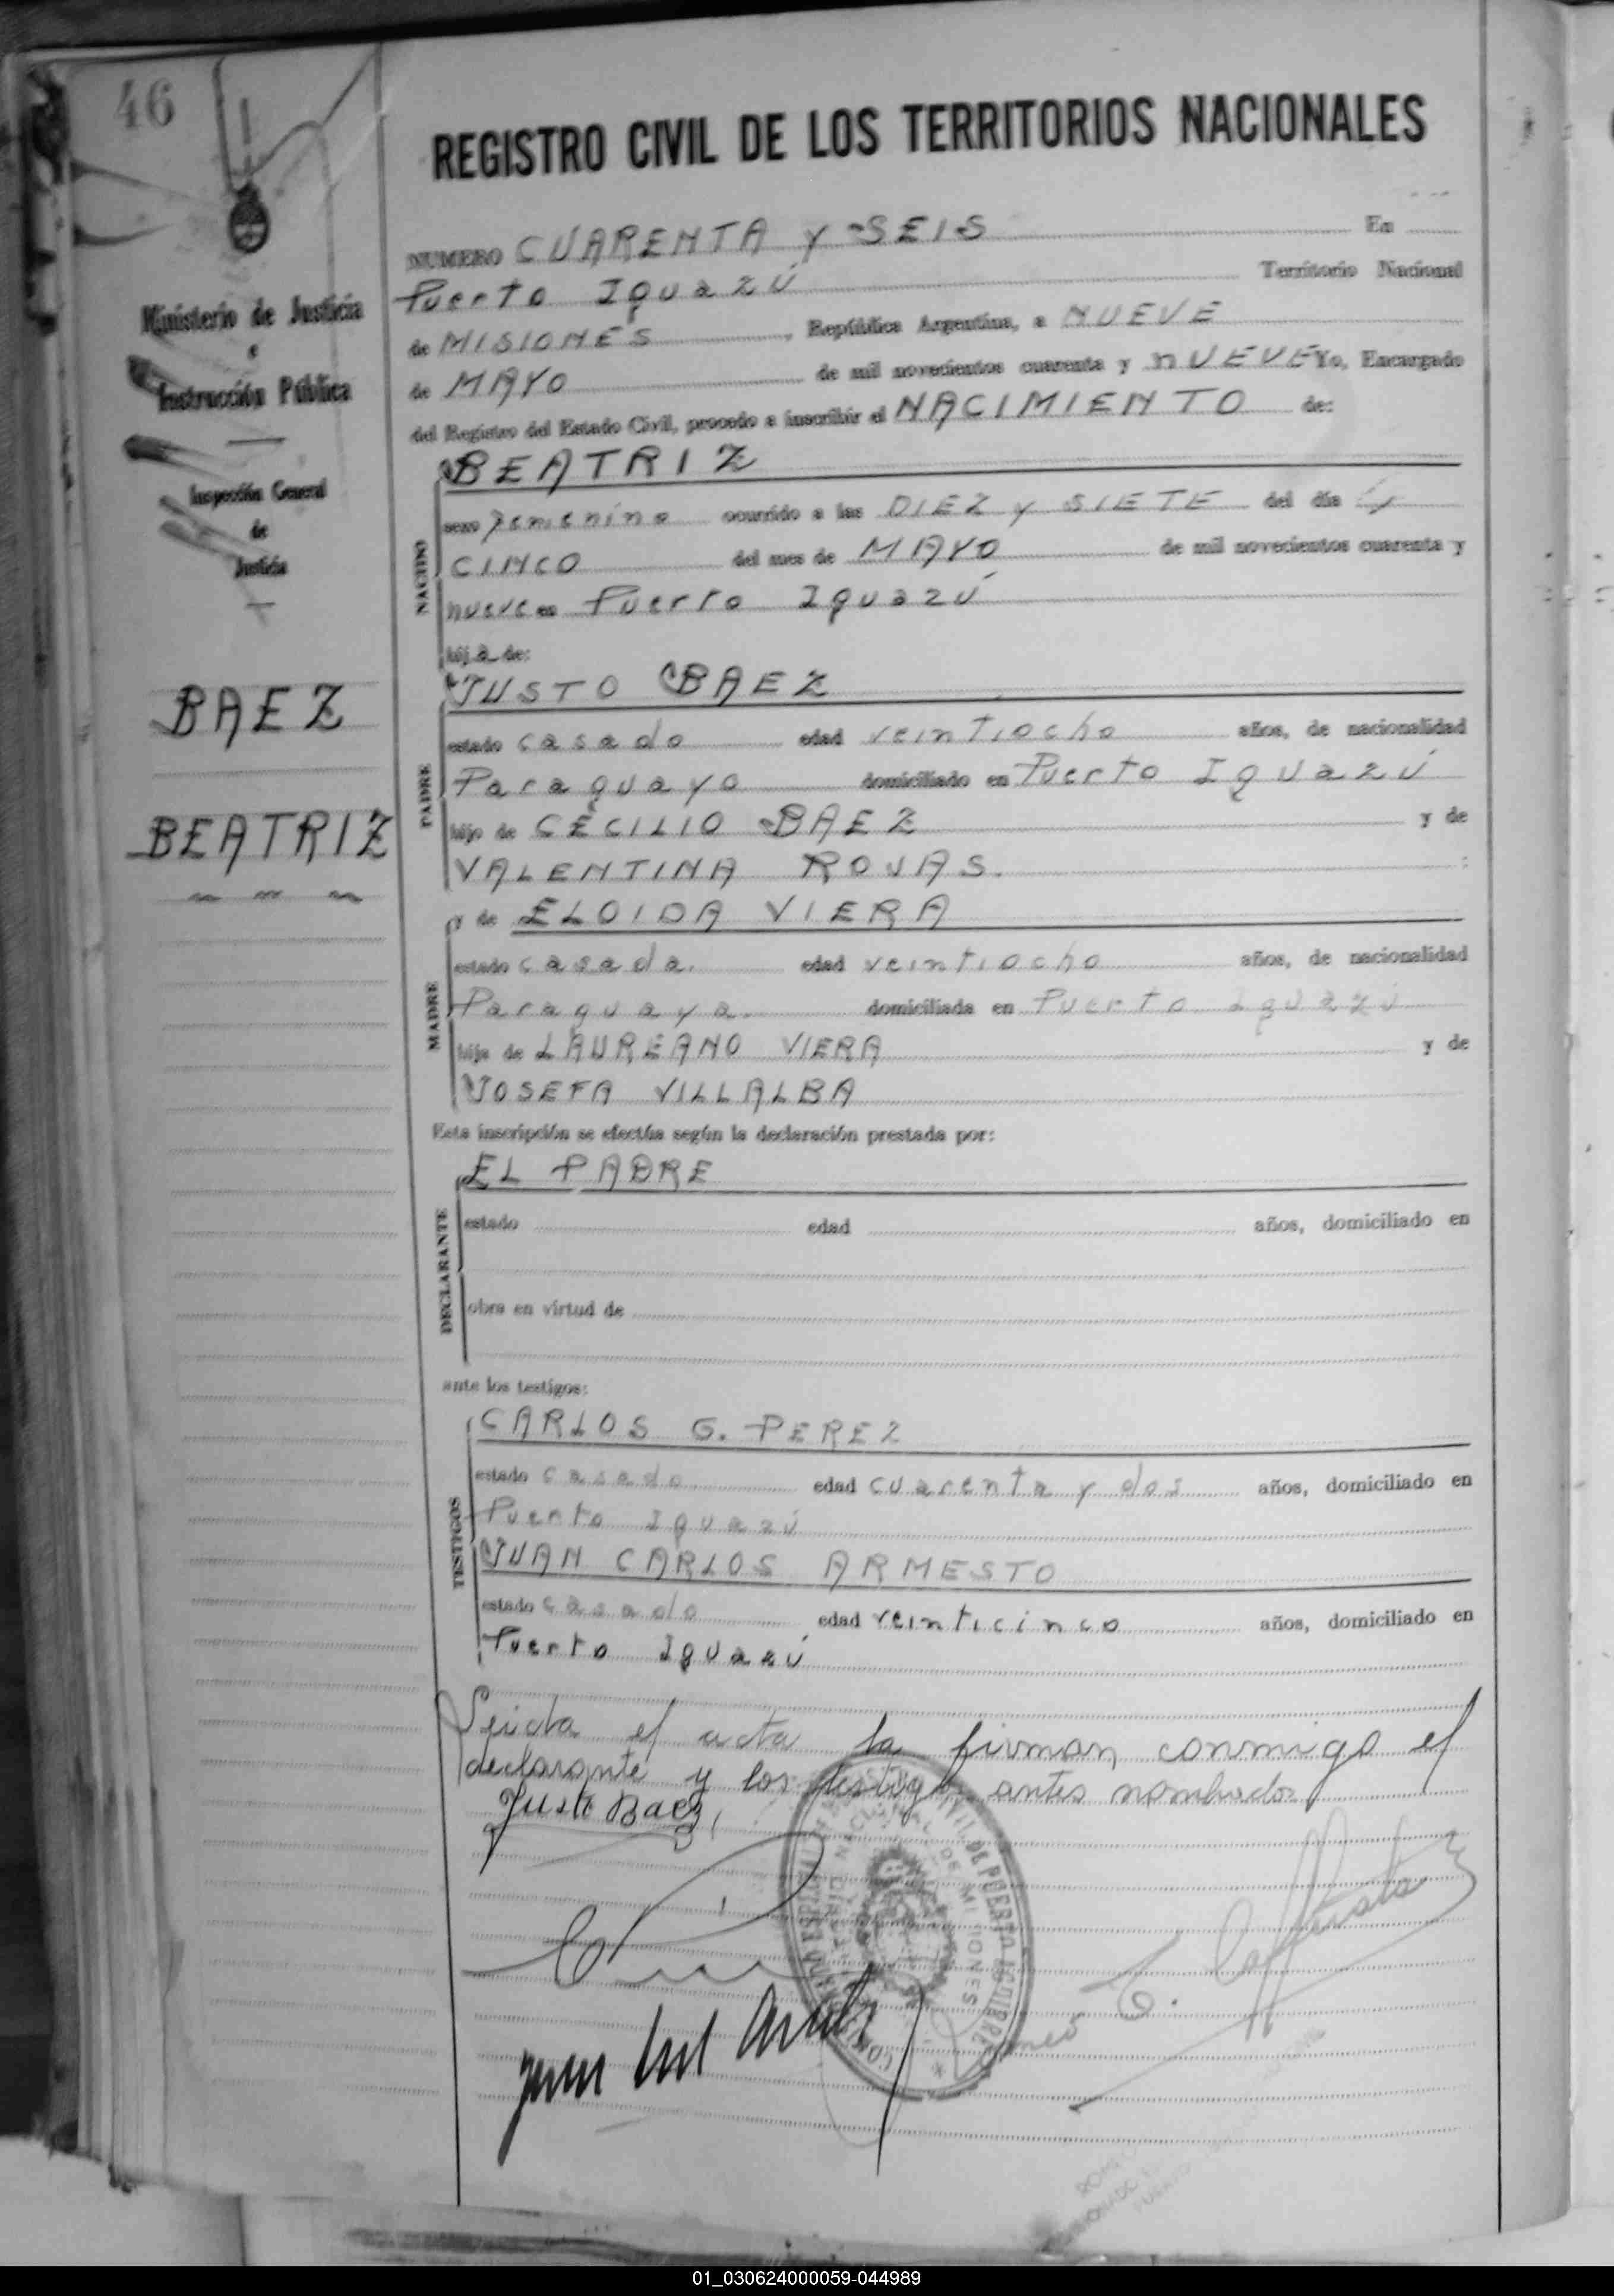 46
REGISTRO CIVIL DE LOS TERRITORIOS NACIONALES
NUMERO CUARENTA y SEIS En
Puerto Iguazú Territorio Nacional
de MISIONES, República Argentina, a NUEVE
de MAYO de mil novecientos cuarenta y nUEVE Yo, Encargado
del Registro del Estado Civil, procedo a inscribir el NACIMIENTO de:
Ministerio de Justicia
e
Instrucción Pública
Inspección General
de
Justicia
BAEZ
BEATRIZ
NACIDO
BEATRIZ
sexo femenino ocurrido a las DIEZ y SIETE del día
CINCO del mes de MAYO de mil novecientos cuarenta y
nueve en Puerto Iguazú
hija de:
PADRE
JUSTO BAEZ
estado casado edad veintiocho años, de nacionalidad
Paraguayo domiciliado en Puerto Iguazú
hijo de CECILIO BAEZ y de
VALENTINA ROJAS.
MADRE
y de ELOIDA VIERA
estado casada. edad veintiocho años, de nacionalidad
Paraguaya. domiciliada en Puerto Iguazú
hija de LAUREANO VIERA y de
JOSEFA VILLALBA
Esta inscripción se efectúa según la declaración prestada por:
DECLARANTE
EL PADRE
estado edad años, domiciliado en
obra en virtud de
ante los testigos:
TESTIGOS
CARLOS G. PEREZ
estado casado edad cuarenta y dos años, domiciliado en
Puerto Iguazú
JUAN CARLOS ARMESTO
estado casado edad veinticinco años, domiciliado en
Puerto Iguazú
el acta la firman conmigo el
declarante y los testigos antes nombrados
Justo Baez
01_030624000059-044989